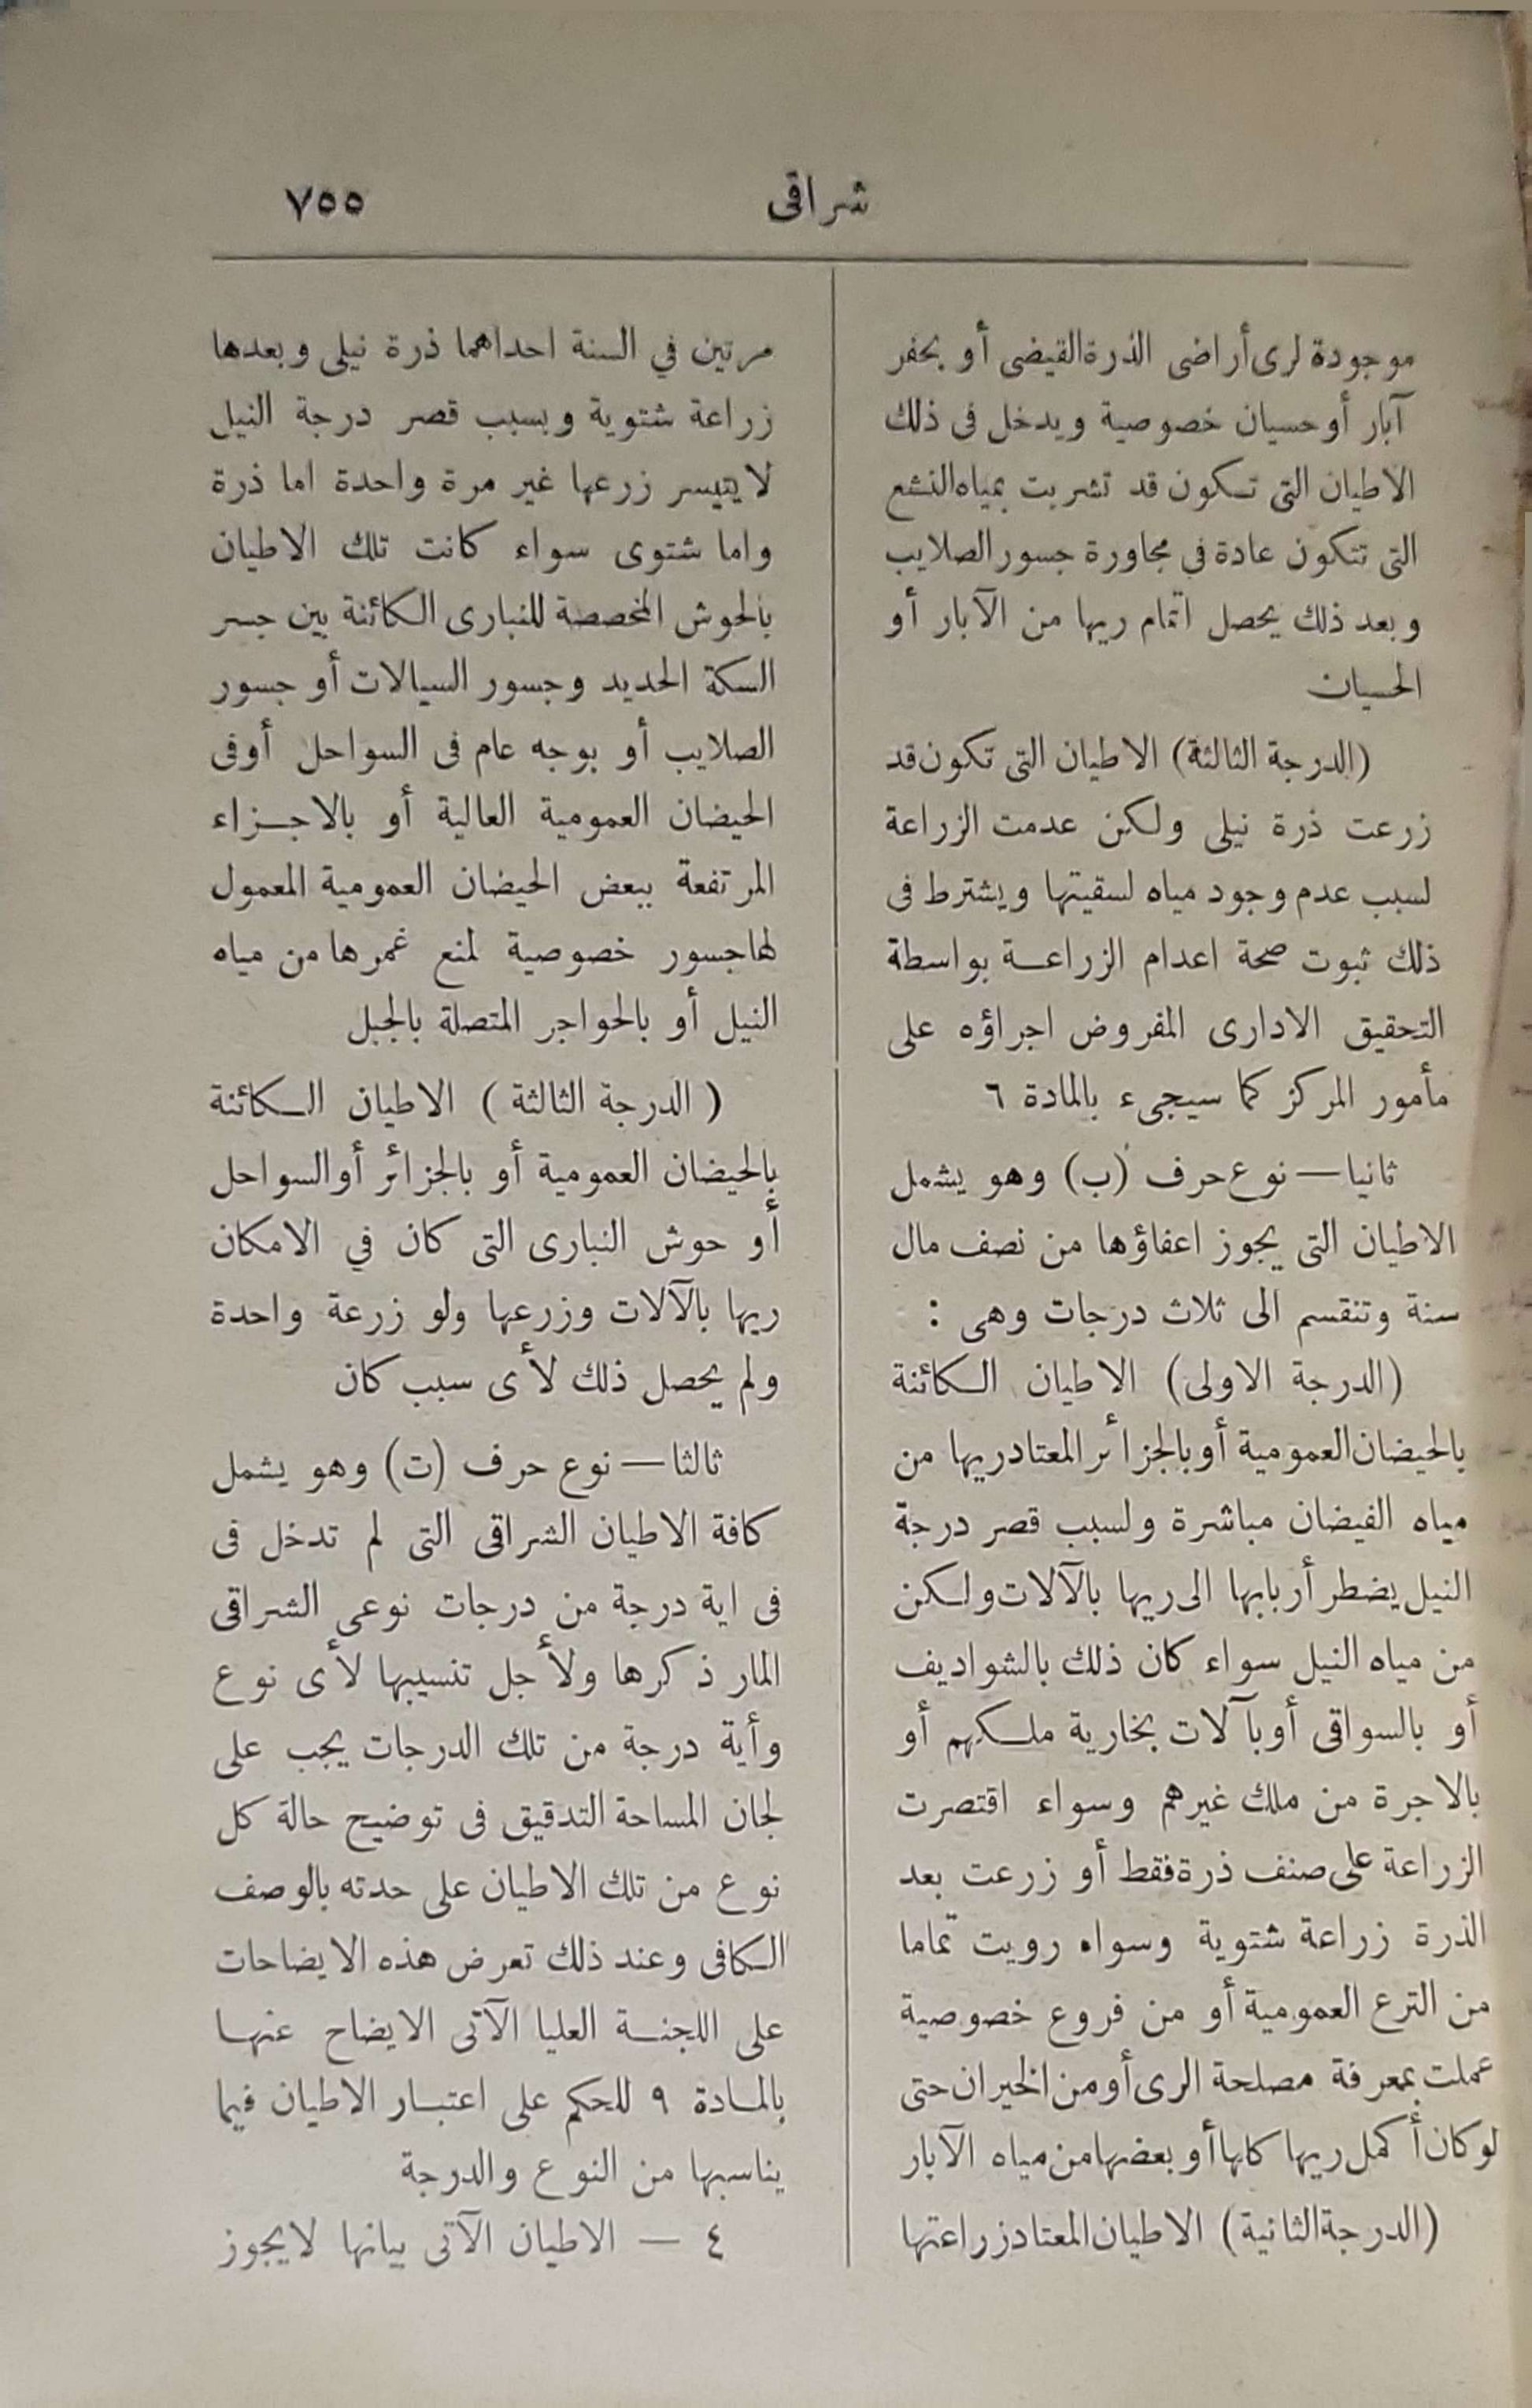 شراقى
٧٥٥
موجودة لرى أراضى الذرة القيضى أو بحفر
آبار أو حسيان خصوصية ويدخل فى ذلك
الاطيان التى تكون قد تشربت بمياه النشع
التى تتكون عادة في مجاورة جسور الصلايب
وبعد ذلك يحصل اتمام ريها من الآبار أو
الحسيان
(الدرجة الثالثة) الاطيان التى تكون قد
زرعت ذرة نيلى ولكن عدمت الزراعة
لسبب عدم وجود مياه لسقيتها ويشترط فى
ذلك ثبوت صحة اعدام الزراعة بواسطة
التحقيق الادارى المفروض اجراؤه على
مأمور المركز كما سيجىء بالمادة ٦
ثانيا — نوع حرف (ب) وهو يشمل
الاطيان التى يجوز اعفاؤها من نصف مال
سنة وتنقسم الى ثلاث درجات وهى :
(الدرجة الاولى) الاطيان الكائنة
بالحيضان العمومية أو بالجزائر المعتاد ريها من
مياه الفيضان مباشرة ولسبب قصر درجة
النيل يضطر أربابها الى ريها بالآلات ولكن
من مياه النيل سواء كان ذلك بالشواديف
أو بالسواقى أو بآلات بخارية ملكهم أو
بالاجرة من ملك غيرهم وسواء اقتصرت
الزراعة على صنف ذرة فقط أو زرعت بعد
الذرة زراعة شتوية وسواء رويت تماما
من الترع العمومية أو من فروع خصوصية
عملت بمعرفة مصلحة الرى أو من الخيران حتى
لو كان أكمل ريها كلها أو بعضها من مياه الآبار
(الدرجة الثانية) الاطيان المعتاد زراعتها
مرتين في السنة احداهما ذرة نيلى وبعدها
زراعة شتوية وبسبب قصر درجة النيل
لا يتيسر زرعها غير مرة واحدة اما ذرة
واما شتوى سواء كانت تلك الاطيان
بالحوش المخصصة للنبارى الكائنة بين جسر
السكة الحديد وجسور السيالات أو جسور
الصلايب أو بوجه عام فى السواحل أو فى
الحيضان العمومية العالية أو بالاجزاء
المرتفعة ببعض الحيضان العمومية المعمول
لها جسور خصوصية لمنع غمرها من مياه
النيل أو بالحواجر المتصلة بالجبل
(الدرجة الثالثة) الاطيان الكائنة
بالحيضان العمومية أو بالجزائر أو السواحل
أو حوش النبارى التى كان في الامكان
ريها بالآلات وزرعها ولو زرعة واحدة
ولم يحصل ذلك لأى سبب كان
ثالثا — نوع حرف (ت) وهو يشمل
كافة الاطيان الشراقى التى لم تدخل فى
فى اية درجة من درجات نوعى الشراقى
المار ذكرها ولأجل تنسيبها لأى نوع
وأية درجة من تلك الدرجات يجب على
لجان المساحة التدقيق فى توضيح حالة كل
نوع من تلك الاطيان على حدته بالوصف
الكافى وعند ذلك تعرض هذه الايضاحات
على اللجنة العليا الآتى الايضاح عنها
بالمادة ٩ للحكم على اعتبار الاطيان فيما
يناسبها من النوع والدرجة
٤ — الاطيان الآتى بيانها لا يجوز